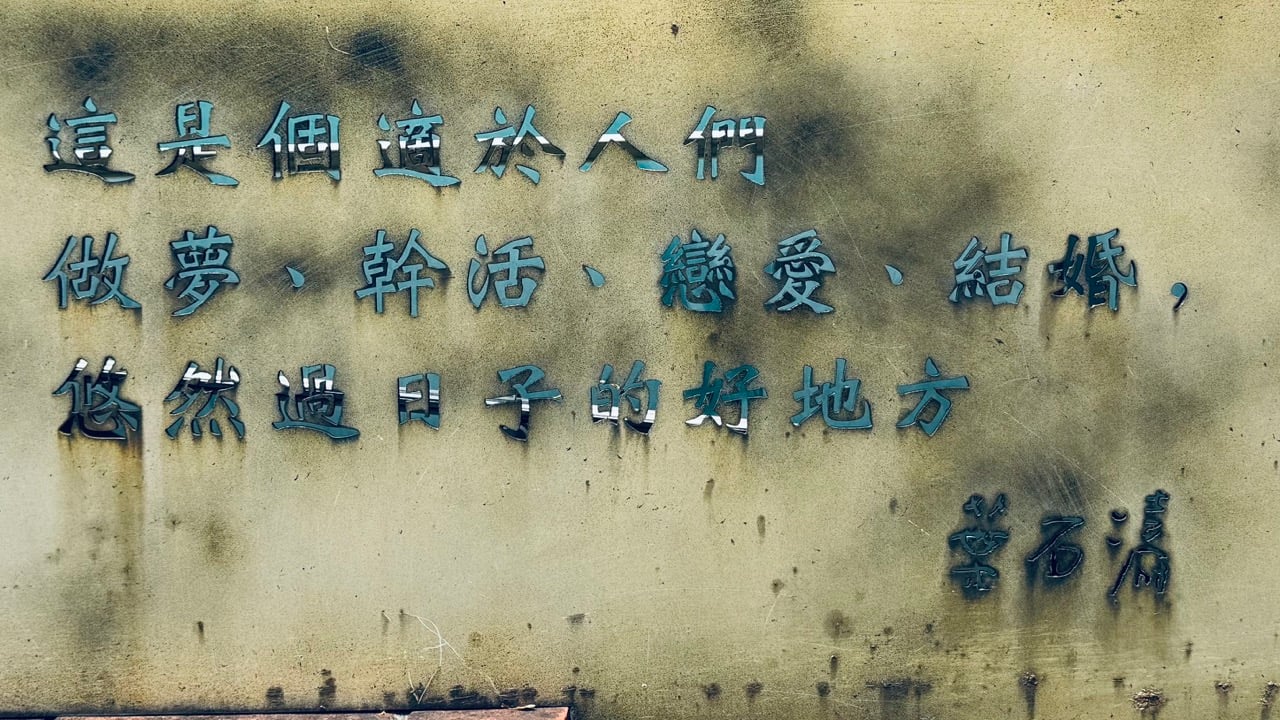 這是個適於人們
做夢、幹活、戀愛、結婚，
悠然過日子的好地方
葉石濤